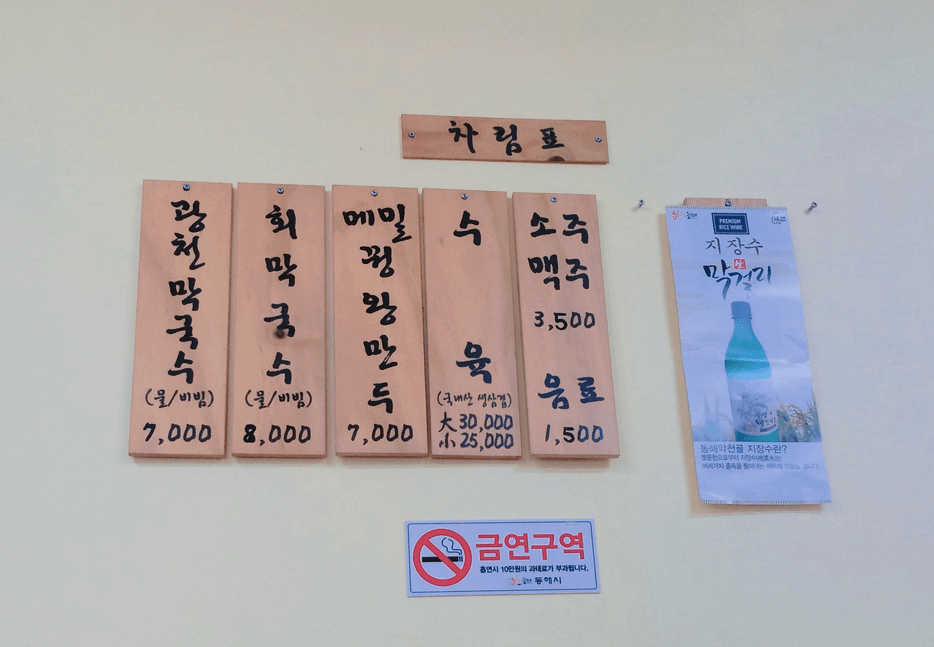 차림표
광천막국수
(물/비빔)
7,000
회막국수
(물/비빔)
8,000
메밀꿩왕만두
7,000
수육
(국내산 생삼겹)
大 30,000
小 25,000
소주
맥주
3,500
음료
1,500
PREMIUM
RICE WINE
지장수
生
막걸리
동해약천골 지장수란?
금연구역
흡연시 10만원의 과태료가 부과됩니다.
동해시